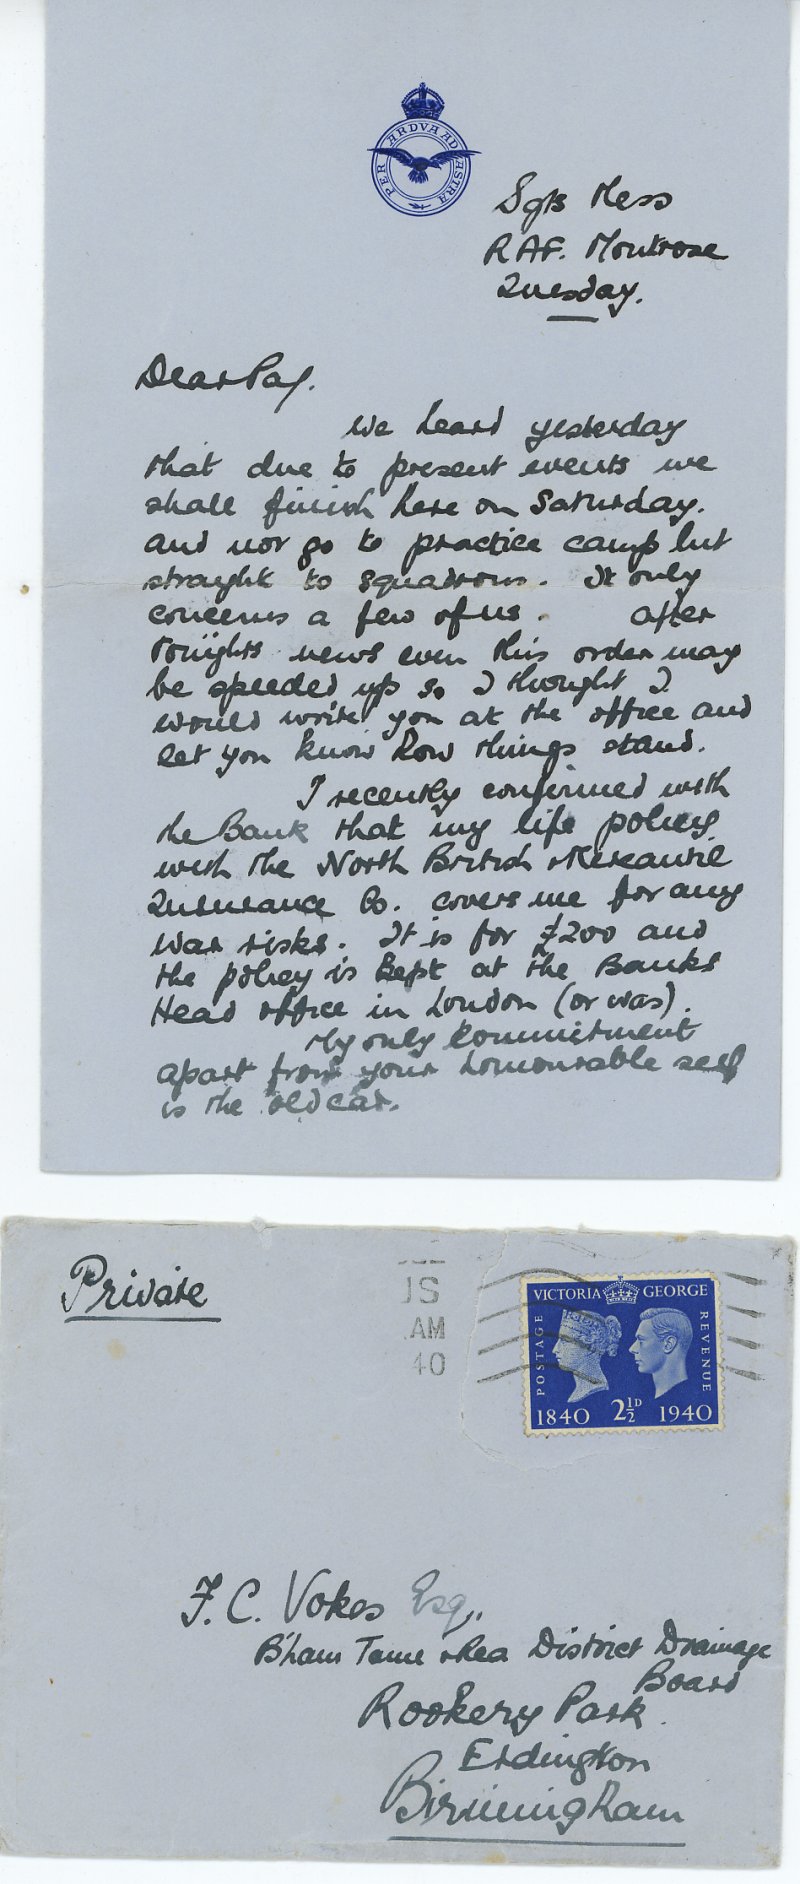 PER ARDVA AD ASTRA
Sgts Mess
RAF. Montrose
Tuesday.
Dear Pay.
We heard yesterday
that due to present events we
shall finish here on Saturday.
and not go to practice camp but
straight to squadrons. It only
concerns a few of us. after
tonights news even this order may
be speeded up so I thought I
would write you at the office and
let you know how things stand.
I recently confirmed with
the Bank that my life policy
with the North British & Mercantile
Insurance Co. covers me for any
war risks. It is for £200 and
the policy is kept at the Banks
Head office in London (or was).
My only commitment
apart from your honourable self
is the old car.
Private
US
.AM
40
VICTORIA GEORGE
POSTAGE
REVENUE
1840 2½D 1940
F. C. Vokes Esq.,
B'ham Tame & Rea District Drainage
Board
Rookery Park
Erdington
Birmingham